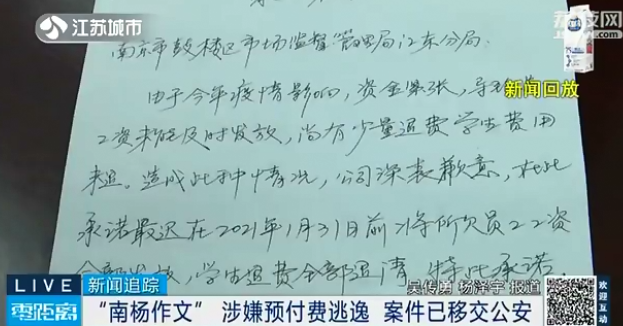 江苏城市
荔枝网
南京市鼓楼区市场监督管理局江东分局:
新闻回放
由于今年疫情影响,资金紧张,导致
工资未能及时发放,尚有少量退费学生费用
未退。造成此种情况,公司深表歉意,在此
承诺最迟在2021年1月31日前将所欠员工工资
全部发放,学生退费全部退清,特此承诺.
LIVE 新闻追踪
吴传勇 杨泽宇 报道
零距离
“南杨作文” 涉嫌预付费逃逸 案件已移交公安
欢迎互动